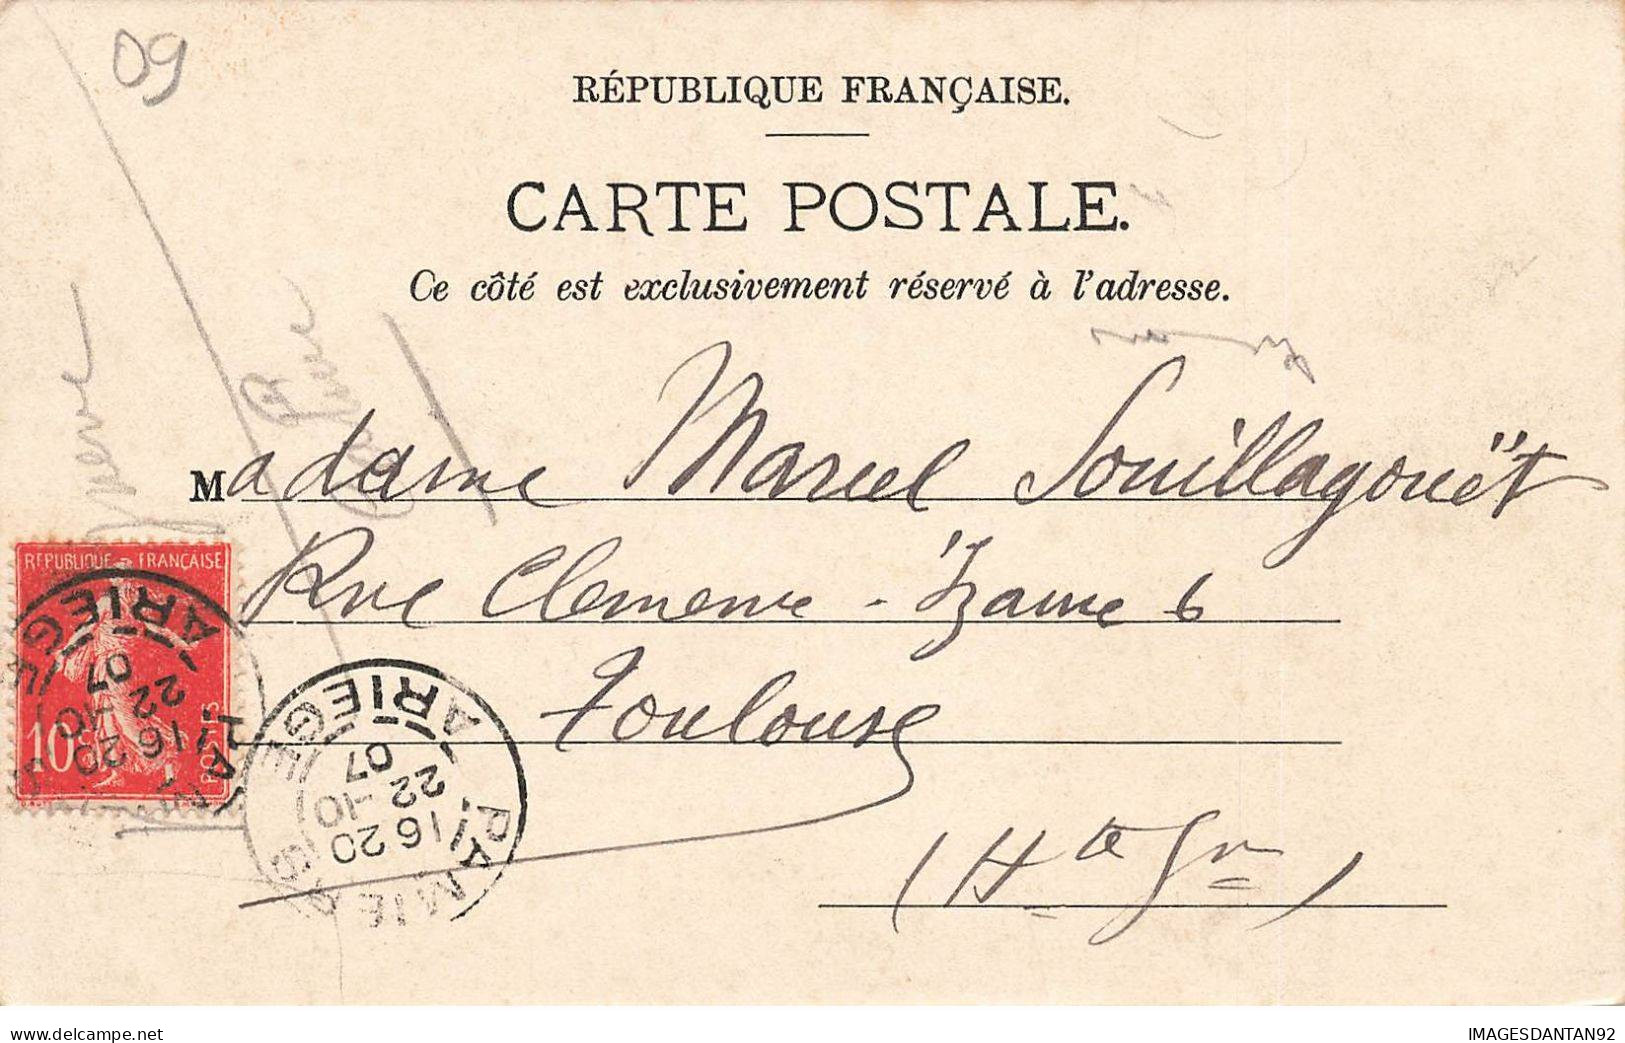 09
RÉPUBLIQUE FRANÇAISE.
CARTE POSTALE.
Ce côté est exclusivement réservé à l'adresse.
Madame Marcel Souillagouët
Rue Clemence-Izaure 6
Toulouse
(Hte Gne)
REPUBLIQUE FRANÇAISE
10c POSTES
PAMIERS ARIEGE
16 20
22-10
07
PAMIERS ARIEGE
16 20
22-10
07
www.delcampe.net
IMAGESDANTAN92